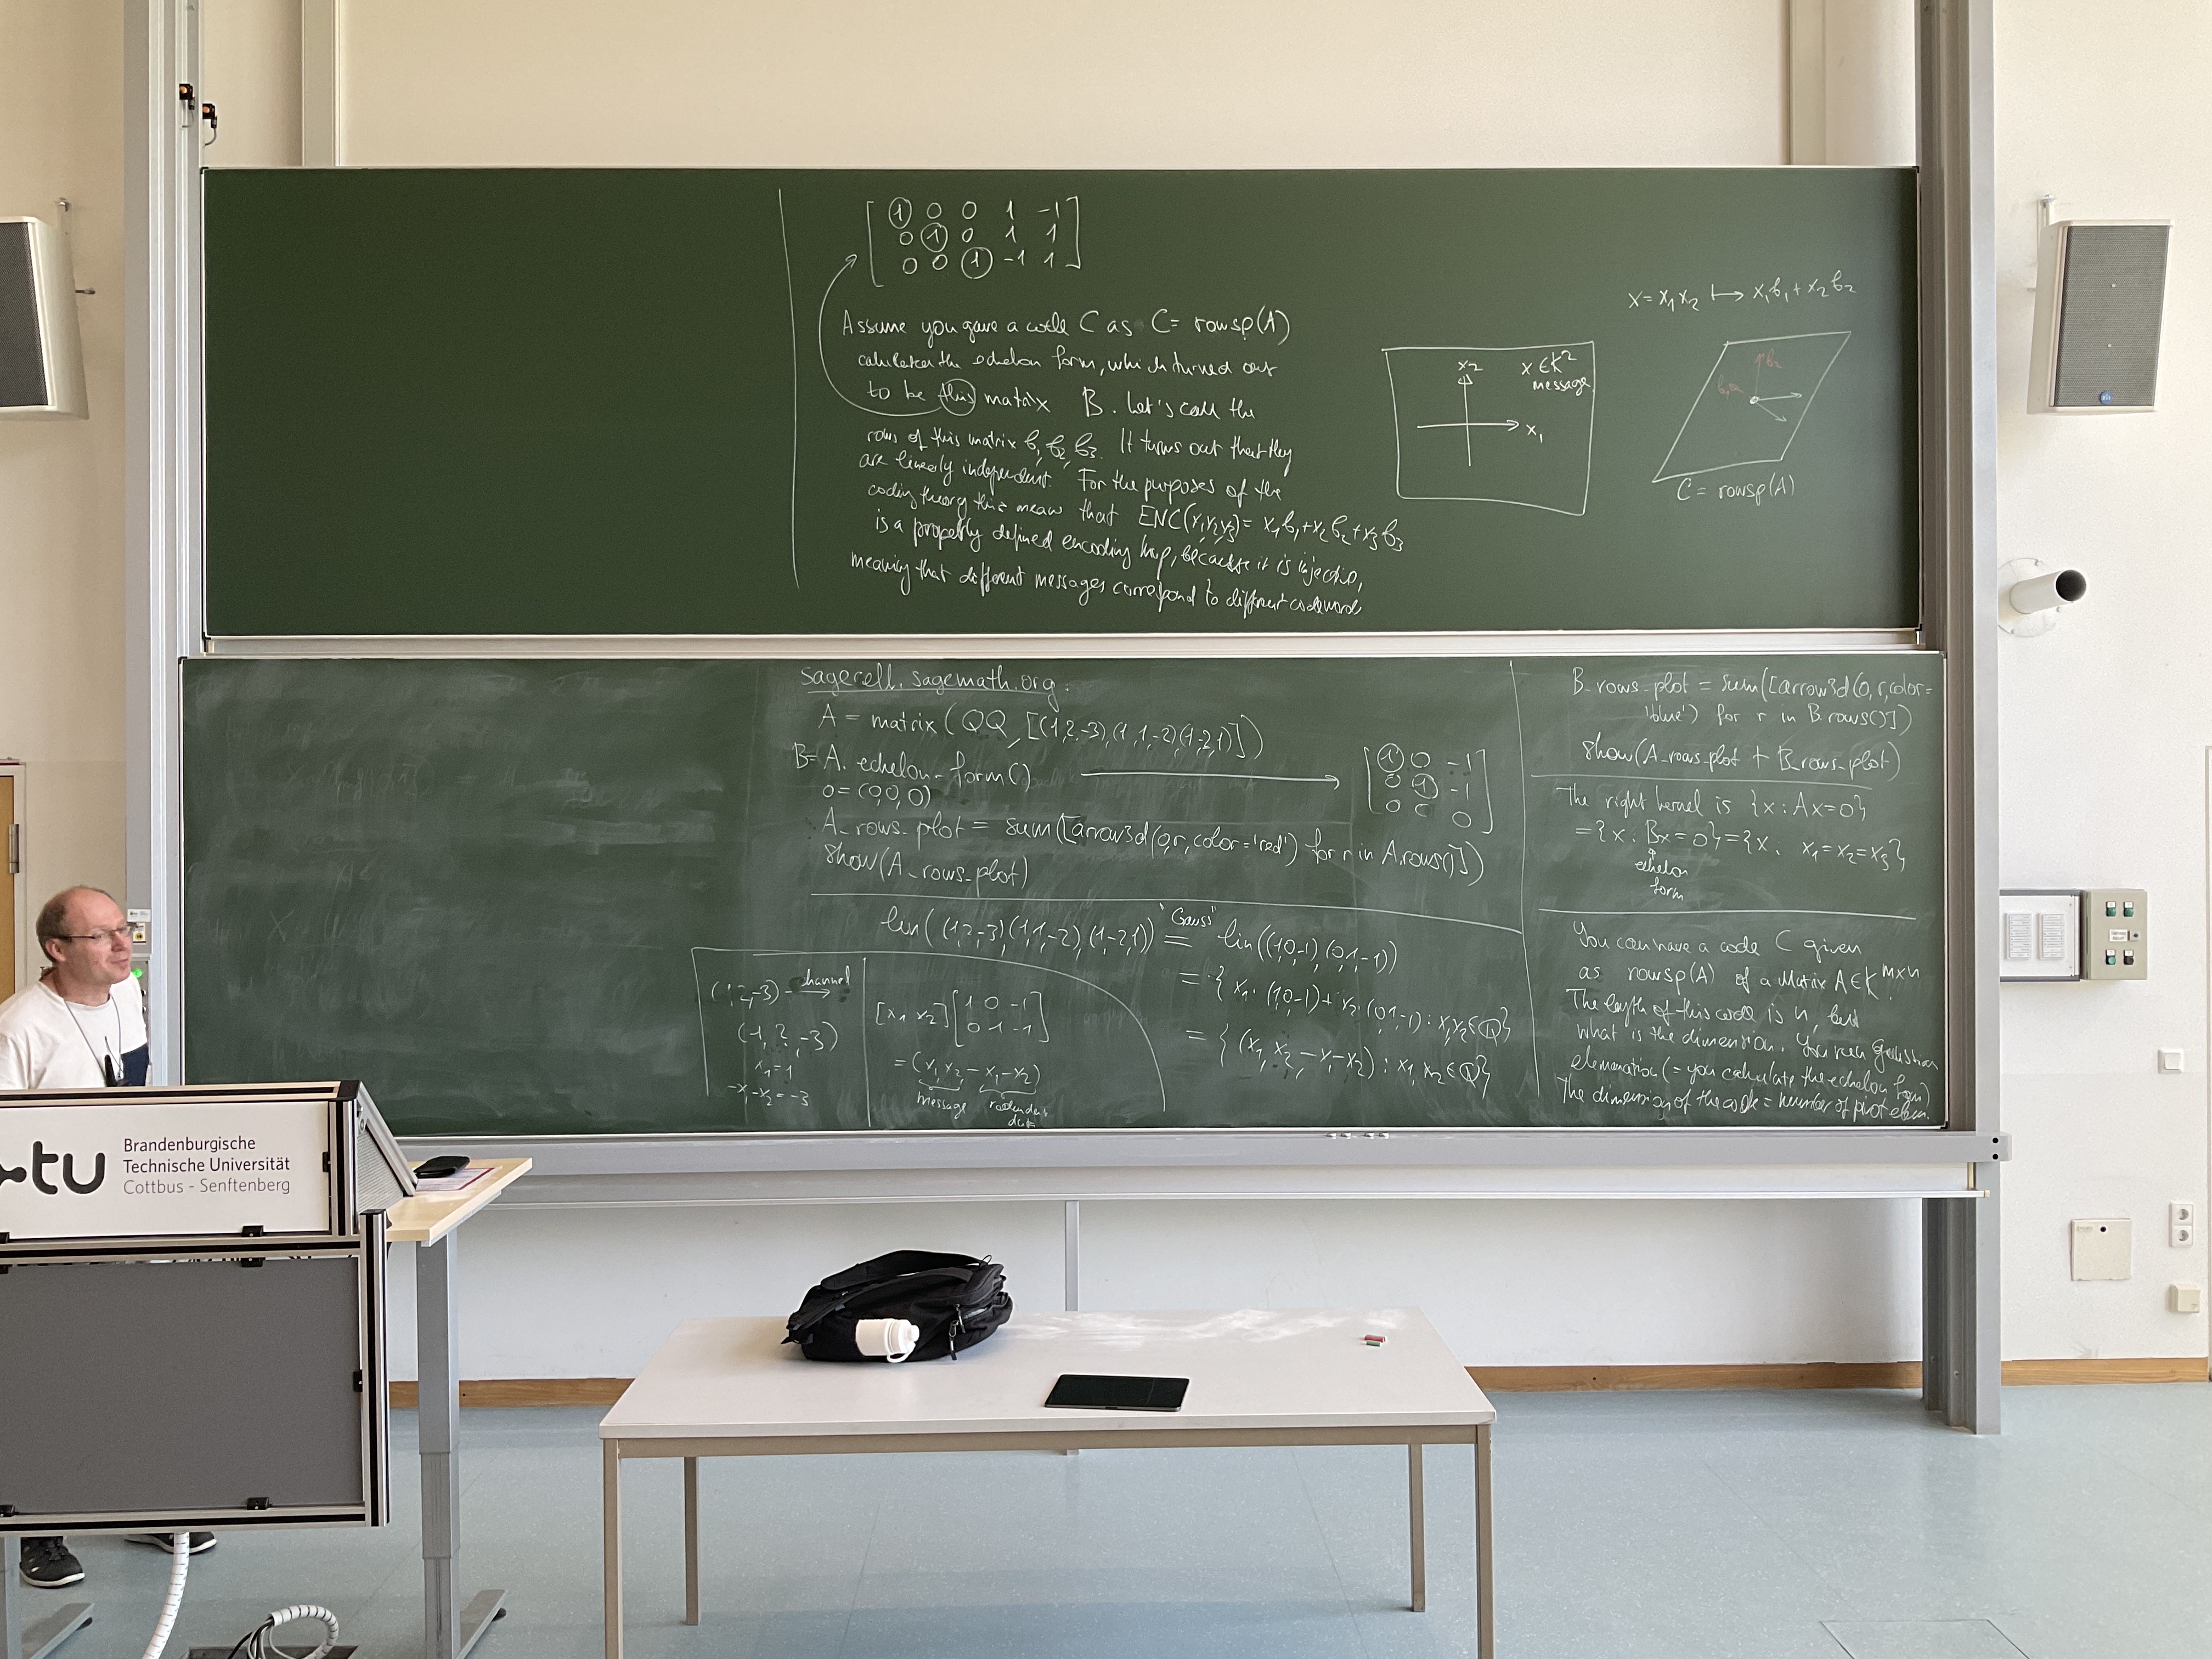 [ 1 0 0 1 -1 ]
[ 0 1 0 1 1 ]
[ 0 0 1 -1 1 ]
Assume you gave a code C as C = rowsp(A)
the echelon form, which turned out
to be this matrix B. Let's call the
rows of this matrix b₁, b₂, b₃. It turns out that they
are linearly independent. For the purposes of the
coding theory this means that ENC(x₁,x₂,x₃) = x₁b₁+x₂b₂+x₃b₃
is a properly defined encoding map, because it is injective,
meaning that different messages correspond to different codewords
x₂
x ∈ K²
message
x₁
x = x₁x₂ ↦ x₁b₁ + x₂b₂
b₂
b₁
C = rowsp(A)
sagecell.sagemath.org.
A = matrix(QQ, [(1,2,-3),(1,1,-2),(1,-2,1)])
B = A.echelon_form()
[ 1 0 -1 ]
[ 0 1 -1 ]
[ 0 0 0 ]
o = (0,0,0)
A_rows_plot = sum([arrow3d(o,r,color='red') for r in A.rows()])
show(A_rows_plot)
lin((1,2,-3),(1,1,-2),(1,-2,1)) "Gauss" = lin((1,0,-1),(0,1,-1))
= {x₁·(1,0,-1)+x₂·(0,1,-1) : x₁,x₂∈Q}
= {(x₁, x₂, -x₁-x₂) : x₁, x₂ ∈ Q}
(1,2,-3) channel →
(1, ?, -3)
x₁=1
-x₁-x₂=-3
[x₁ x₂] [ 1 0 -1 ]
[ 0 1 -1 ]
= (x₁, x₂, -x₁-x₂)
message
B_rows_plot = sum([arrow3d(o,r,color=
'blue') for r in B.rows()])
show(A_rows_plot + B_rows_plot)
The right kernel is {x : Ax=0}
= {x : Bx=0} = {x : x₁=x₂=x₃}
echelon
form
You can have a code C given
as rowsp(A) of a Matrix A∈K^{m×n}.
The length of this code is n, but
what is the dimension. You run
(= you calculate the echelon form)
The dimension of the code = number of pivot elem.
tu
Brandenburgische
Technische Universität
Cottbus - Senftenberg